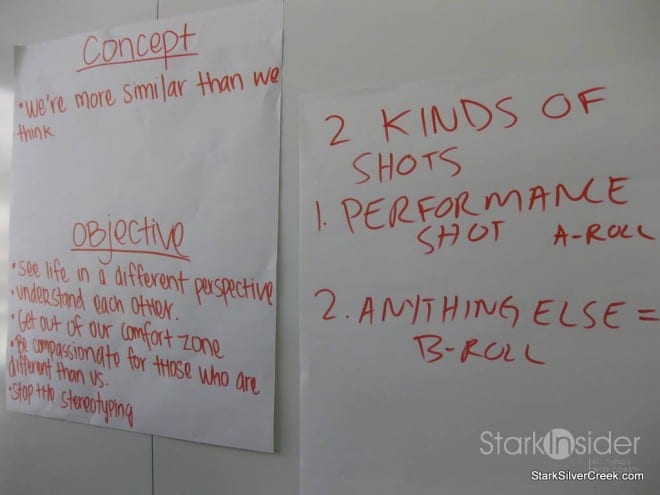 Concept
• We're more similar than we
think
Objective
• See life in a different perspective
• understand each other.
• Get out of our comfort zone
• Be compassionate for those who are
different than us.
• Stop the stereotyping
2 KINDS OF
SHOTS
1. PERFORMANCE
SHOT A-ROLL
2. ANYTHING ELSE =
B-ROLL
StarkInsider
StarkSilverCreek.com